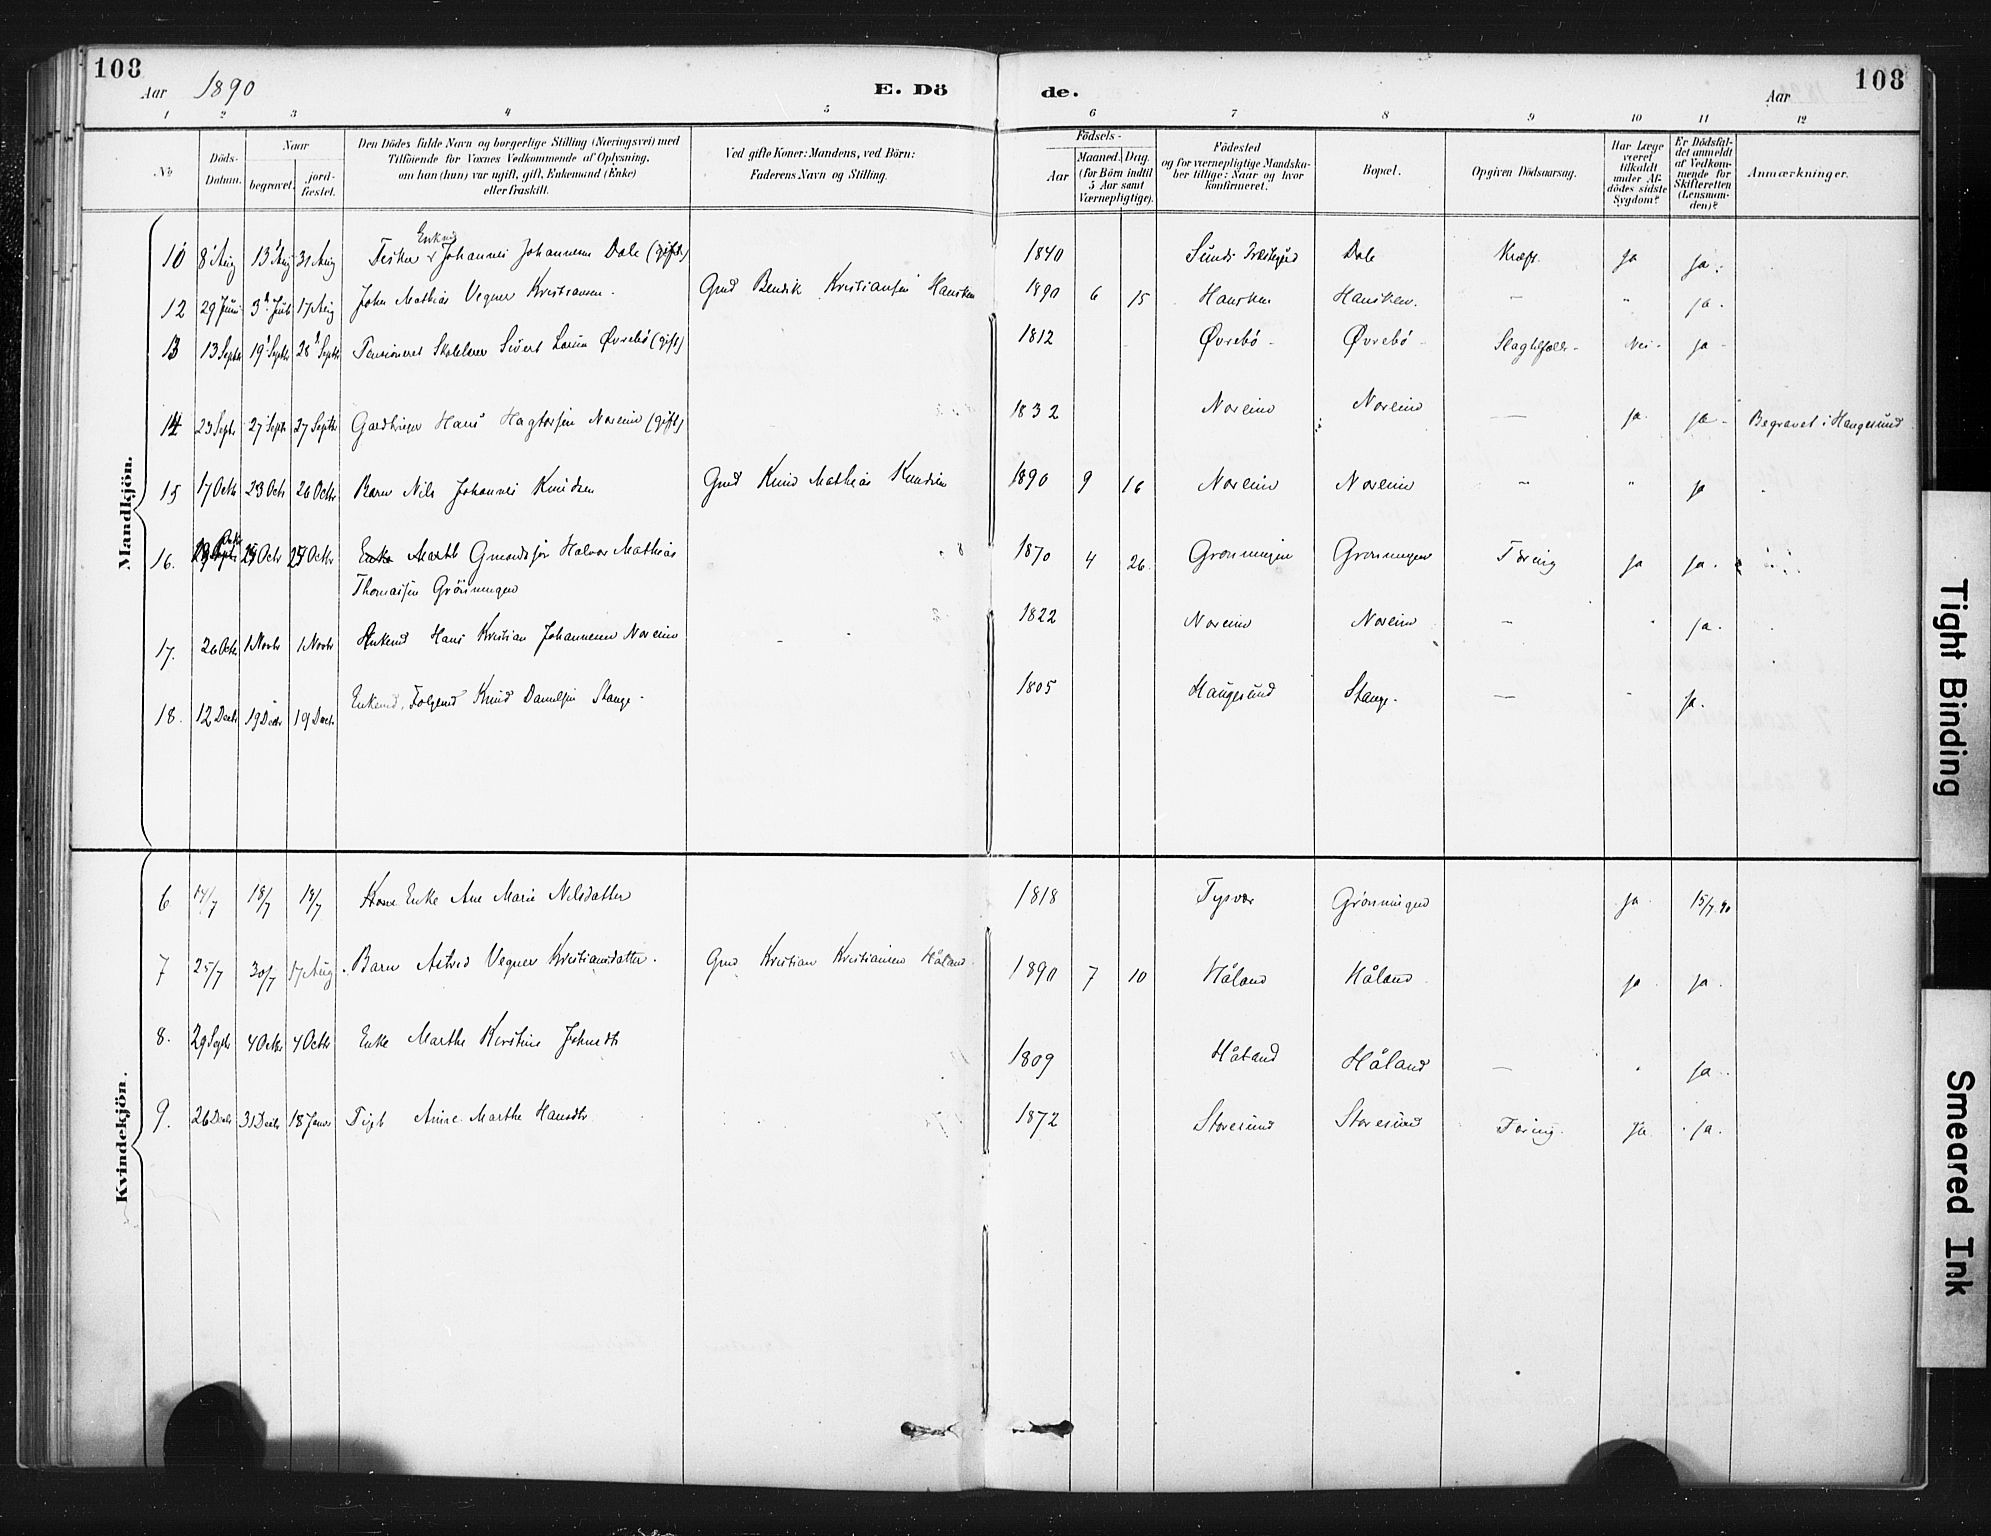 108
Aar 1890
E. Dö
de.
Aar
108
1 2 3 4 5 6 7 8 9 10 11 12
No
Döds-
Datum.
Naar
begravet.
jord-
fæstet.
Den Dödes fulde Navn og borgerlige Stilling (Næringsvei) med
Tilföiende for Voxnes Vedkommende af Oplysning,
om han (hun) var ugift, gift, Enkemand (Enke)
eller fraskilt.
Ved gifte Koner: Mandens, ved Börn:
Faderens Navn og Stilling.
Födsels-
Aar
Maaned. Dag.
(for Börn indtil
5 Aar samt
Værnepligtige).
Födested
og for værnepligtige Mandska-
ber tillige: Naar og hvor
konfirmeret.
Bopæl.
Opgiven Dödsaarsag.
Har Læge
været
tilkaldt
under Af-
dödes sidste
Sygdom?
Er Dödsfal-
det anmeldt
af Vedkom-
mende for
Skifteretten
(Lensman-
den)?
Anmærkninger.
Mandkjön.
10 8 Aug 13 Aug 31 Aug Fisker Johannes Johannesen Dale (gift) 1840 Dale Kræft ja ja
12 29 Juni 3 Juli 17 Aug John Mathias Vegner Kristiansen. Gmd Bendik Kristiansen Hausken 1890 6 15 Hausken Hausken. — " ja -
13 13 Septbr 19 Septbr 28 Septbr Pensioneret Skolelærer Sivert Øvrebö (gift) 1812 Øvrebö - Øvrebö - Slagtilfælde - Nei - ja -
14 23 Septbr 27 Septbr 27 Septbr Gaardbruger Hans Noreim (gift) 1832 Noreim Noreim — ja. ja - Begravet i Haugesund
15 17 Octbr 23 Octbr 26 Octbr Barn Nils Johannes Knudsen Gmd Knud Mathias Knudsen 1890 9 16 Noreim Noreim - " ja
16. Octbr 25 Octbr Halvor Mathias 1870 4 26 Grønningen Grønningen Tæring ja ja.
Thomassen Grönningen
17. 26 Octbr 1 Novbr 1 Novbr Enkemd Hans Kristian Johannesen Noreim 1822 Noreim Noreim - ja.
18. 12 Decbr 19 Decbr 19 Decbr Enkemd, Folgemd Knud Danielsen Stange - 1805 Haugesund Stange. — ja.
Kvindekjön.
6 14/7 18/7 18/7 Enke Ane Marie Nilsdatter 1818 Tysvær Grönningen ja. 15/7.90
7 25/7 30/7 17 Aug. Barn Astrid Vegner Kristiansdatter. Gmd Kristian Kristiansen Håland 1890 7 10 Håland Håland ja. ja.
8. 29 Septbr 4 Octbr 4 Octbr Enke Marthe Kirstine 1809 Håland Håland — ja.
9. 26 Decbr 31 Decbr 18 Januar Pige Anne Marthe Hansdtr 1872 Storesund Storesund Tæring. Ja. ja.
Tight Binding
Smeared Ink